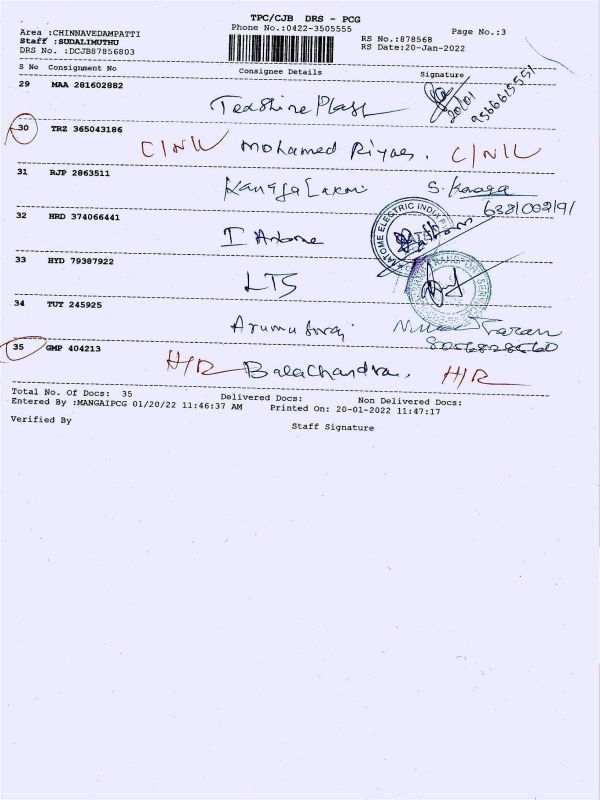 TPC/CJB DRS - PCG
Phone No.:0422-3505555
Page No.:3
Area :CHINNAVEDAMPATTI
Staff :SUDALIMUTHU
DRS No. :DCJB87856803
RS No.:878568
RS Date:20-Jan-2022
S No Consignment No Consignee Details Signature
29 MAA 281602882
20/01
9566615551
30 TRZ 365043186
Mohamed Riyas.
31 RJP 2863511
Kanaga Laxmi S. Kanaga
32 HRD 374066441
ELECTRIC INDIA
33 HYD 79387922
LTS
34 TUT 245925
35 GMP 404213
H/R Balachandran. H/R
Total No. Of Docs: 35 Delivered Docs: Non Delivered Docs:
Entered By :MANGAIPCG 01/20/22 11:46:37 AM Printed On: 20-01-2022 11:47:17
Verified By Staff Signature